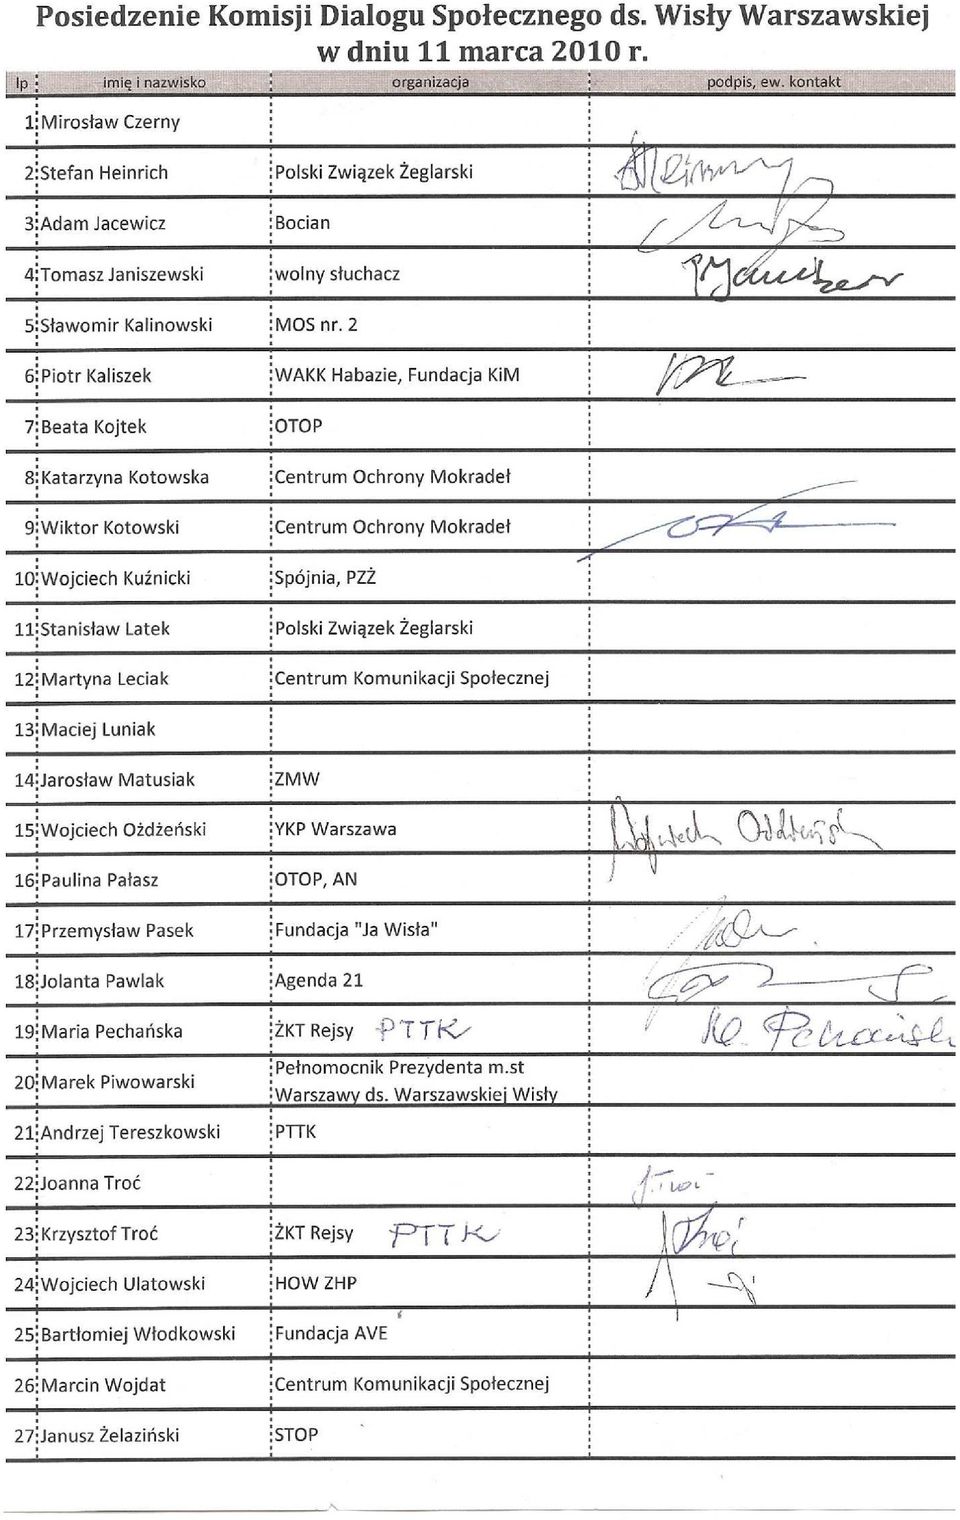 Posiedzenie Komisji Dialogu Społecznego ds. Wisły Warszawskiej
w dniu 11 marca 2010 r.
lp imię i nazwisko organizacja podpis, ew. kontakt
1 Mirosław Czerny
2 Stefan Heinrich Polski Związek Żeglarski
3 Adam Jacewicz Bocian
4 Tomasz Janiszewski wolny słuchacz
5 Sławomir Kalinowski MOS nr. 2
6 Piotr Kaliszek WAKK Habazie, Fundacja KiM
7 Beata Kojtek OTOP
8 Katarzyna Kotowska Centrum Ochrony Mokradeł
9 Wiktor Kotowski Centrum Ochrony Mokradeł
10 Wojciech Kuźnicki Spójnia, PZŻ
11 Stanisław Latek Polski Związek Żeglarski
12 Martyna Leciak Centrum Komunikacji Społecznej
13 Maciej Luniak
14 Jarosław Matusiak ZMW
15 Wojciech Ożdżeński YKP Warszawa Wojciech Ożdżeński
16 Paulina Pałasz OTOP, AN
17 Przemysław Pasek Fundacja "Ja Wisła"
18 Jolanta Pawlak Agenda 21
19 Maria Pechańska ŻKT Rejsy PTTK M. Pechańska
20 Marek Piwowarski Pełnomocnik Prezydenta m.st
Warszawy ds. Warszawskiej Wisły
21 Andrzej Tereszkowski PTTK
22 Joanna Troć JTroć
23 Krzysztof Troć ŻKT Rejsy PTTK
24 Wojciech Ulatowski HOW ZHP
25 Bartłomiej Włodkowski Fundacja AVE
26 Marcin Wojdat Centrum Komunikacji Społecznej
27 Janusz Żelaziński STOP